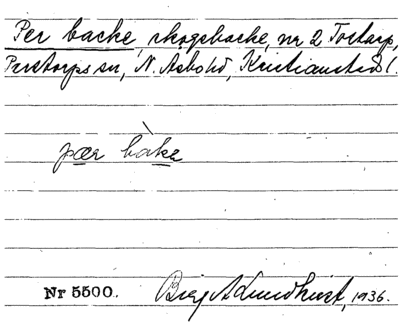 Per backe, skogsbacke, nr 2 Tostarp,
Perstorps sn, N. Åsbo hd, Kristianstads l.
pær bàkæ
Nr 5500. Birg A Lundkvist, 1936.